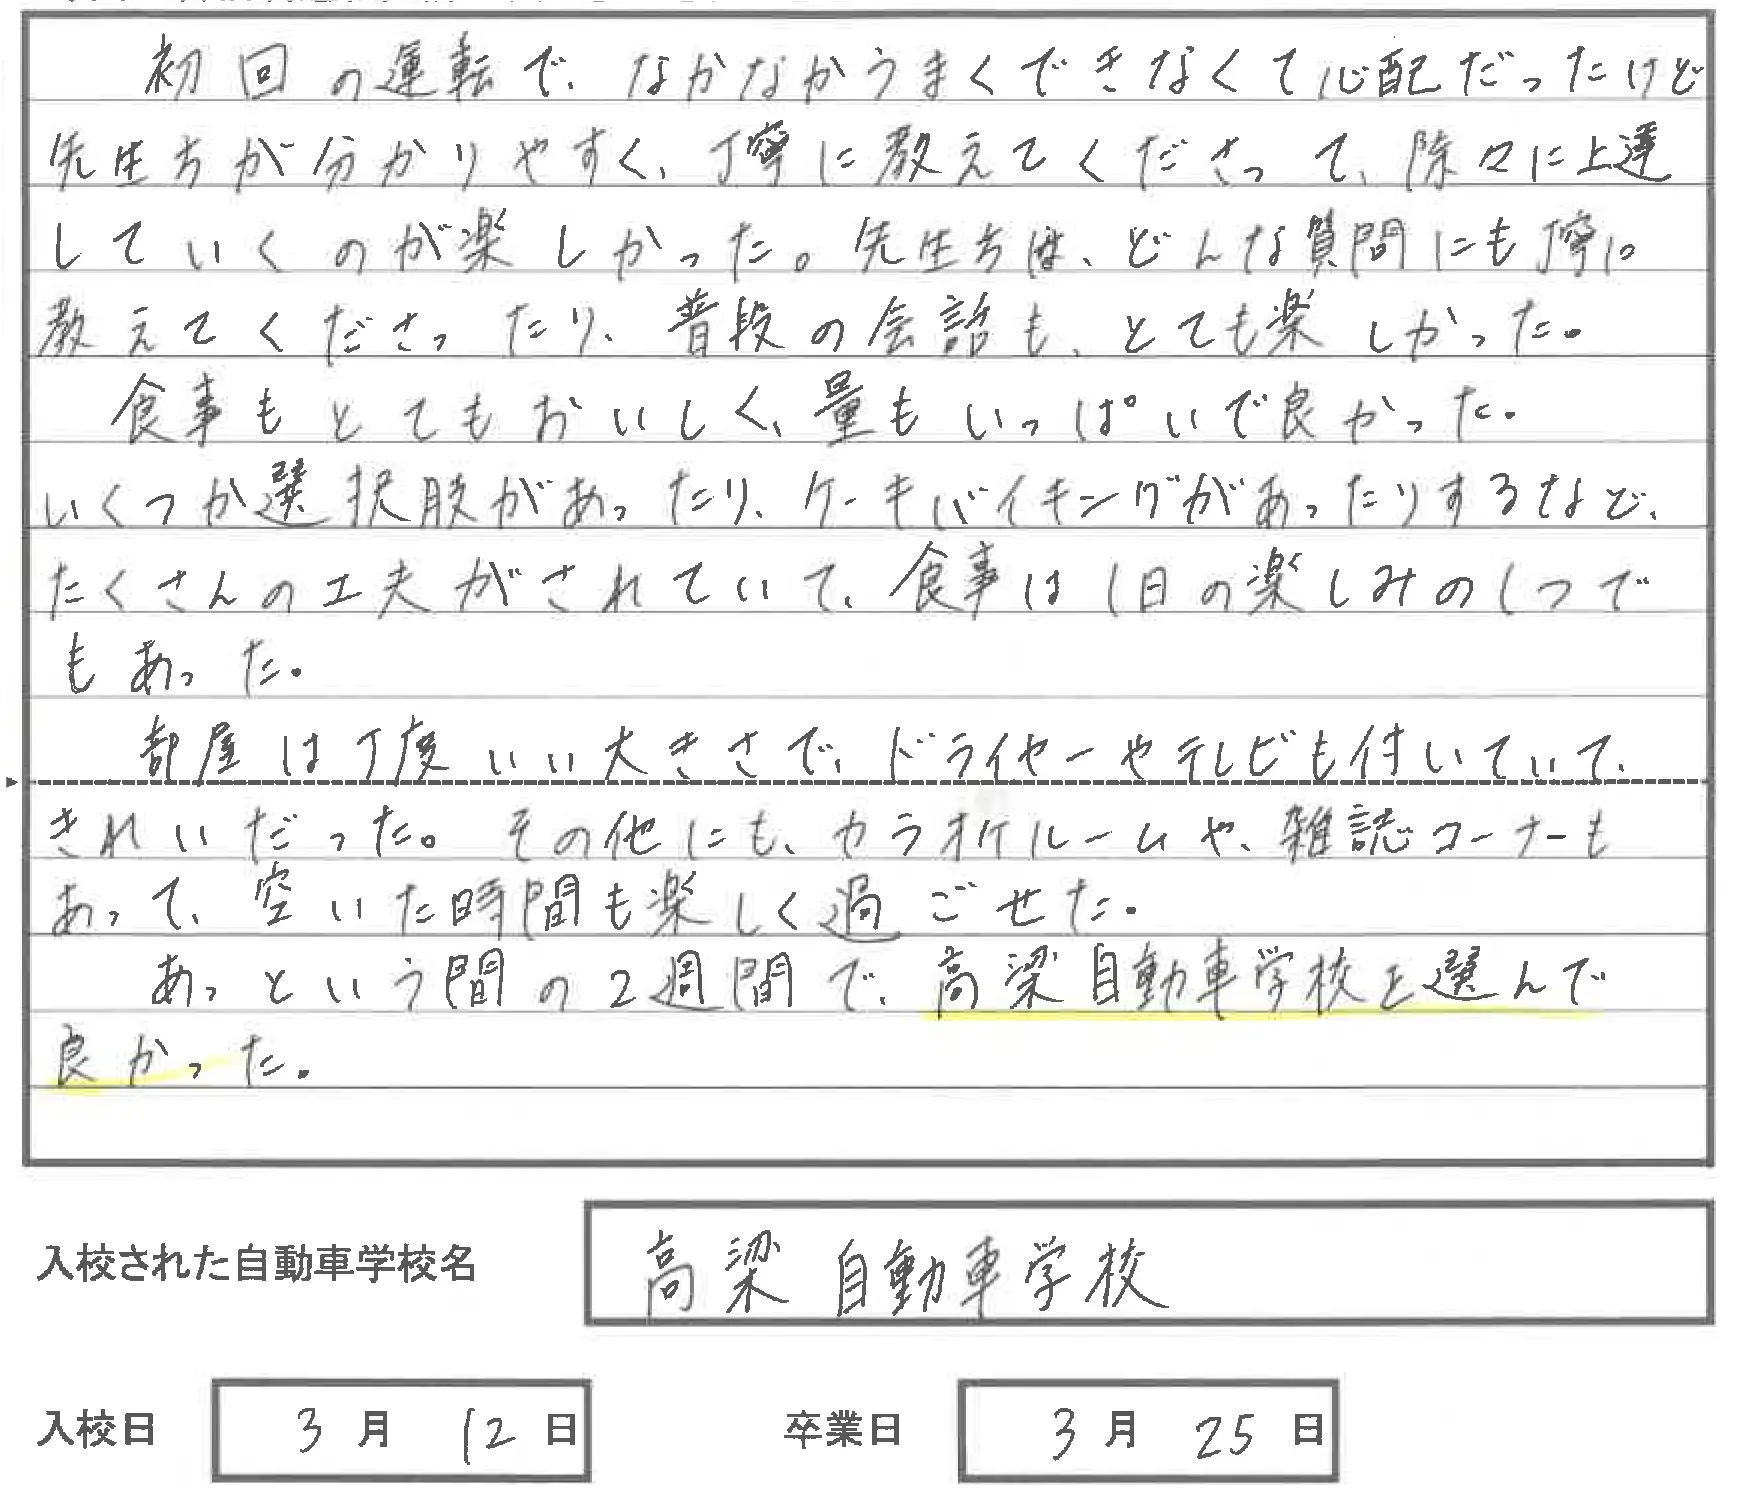 初回の運転で、なかなかうまくできなくて心配だったけど
先生方が分かりやすく、丁寧に教えてくださって、除々に上達
していくのが楽しかった。先生方は、どんな質問にも丁寧に
教えてくださったり、普段の会話も、とても楽しかった。
食事もとてもおいしく、量もいっぱいで良かった。
いくつか選択肢があったり、ケーキバイキングがあったりするなど、
たくさんの工夫がされていて、食事は1日の楽しみの1つで
もあった。
部屋は丁度いい大きさで、ドライヤーやテレビも付いていて、
きれいだった。その他にも、カラオケルームや、雑誌コーナーも
あって、空いた時間も楽しく過ごせた。
あっという間の2週間で、高梁自動車学校を選んで
良かった。
入校された自動車学校名 高梁自動車学校
入校日 3月12日 卒業日 3月25日